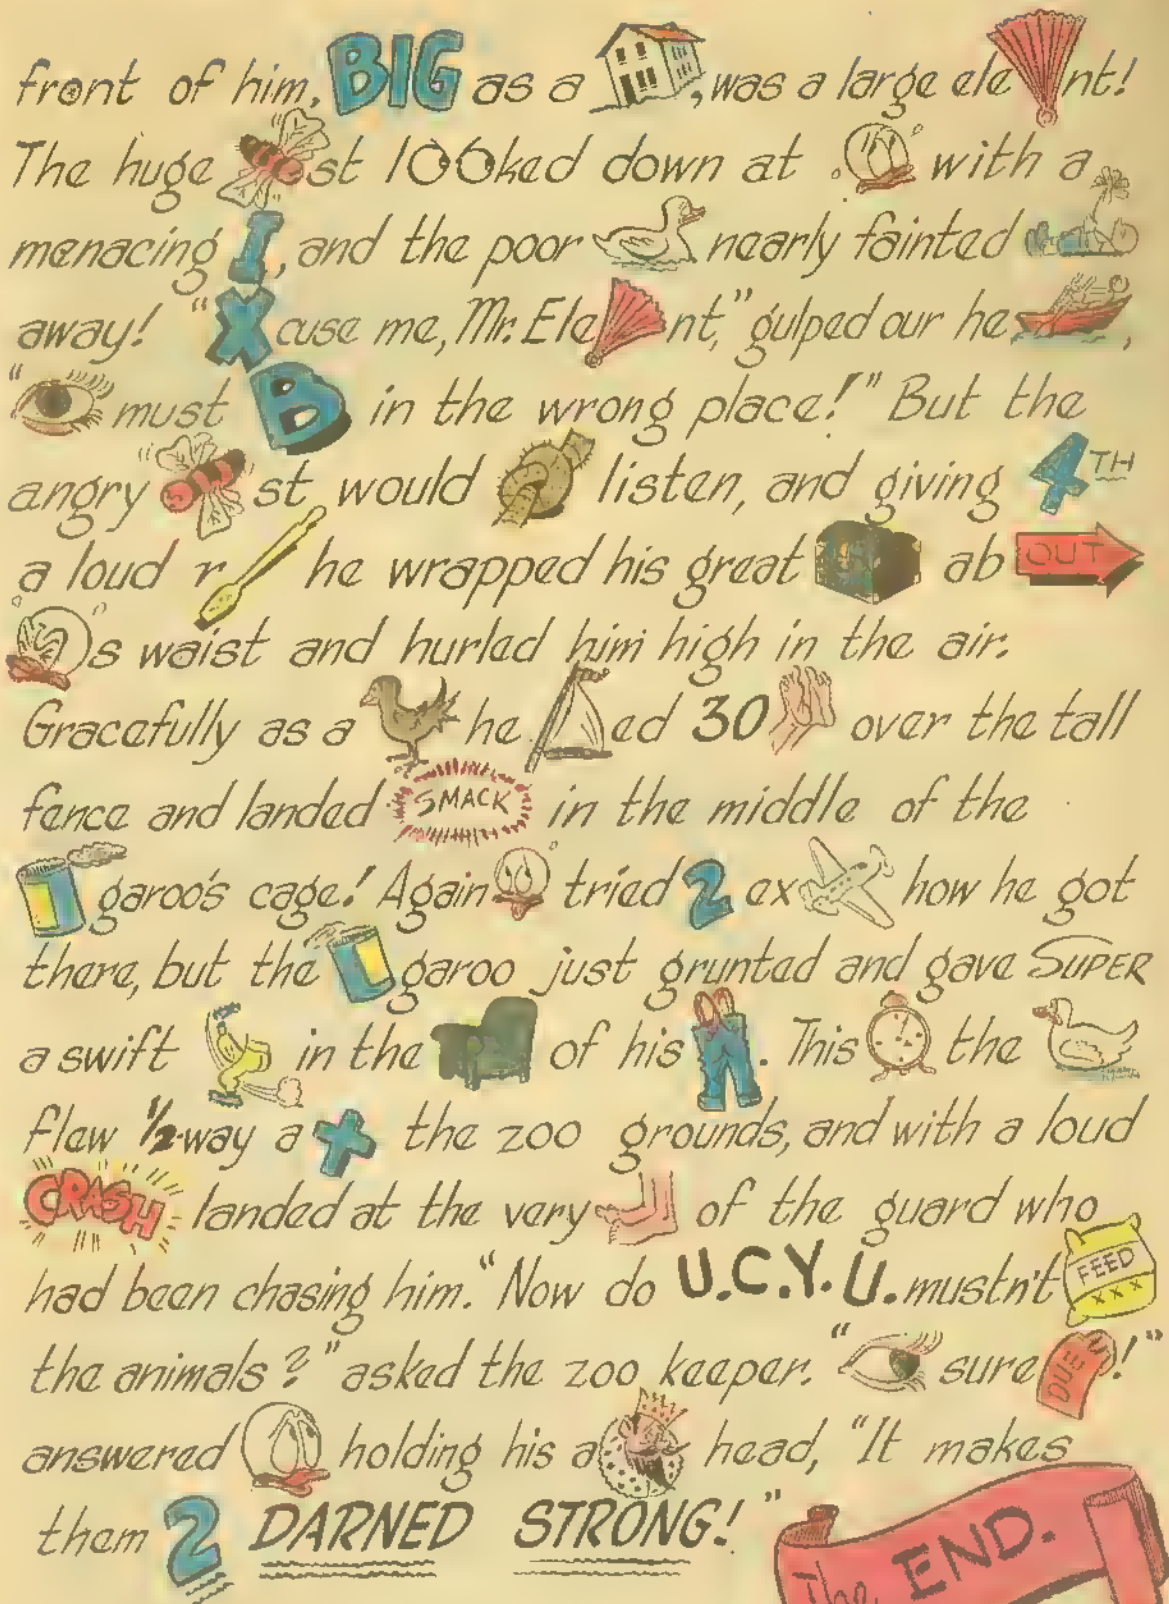 front of him, BIG as a , was a large ele nt!
The huge st looked down at with a
menacing I, and the poor nearly fainted
away! "X cuse me, Mr. Ele nt," gulped our he ,
" must B in the wrong place!" But the
angry st would listen, and giving 4TH
a loud r he wrapped his great ab OUT
's waist and hurled him high in the air.
Gracefully as a he ed 30 over the tall
fence and landed SMACK in the middle of the
garoo's cage! Again tried 2 ex how he got
there, but the garoo just grunted and gave SUPER
a swift in the of his . This the
flew 1/2-way a + the zoo grounds, and with a loud
CRASH landed at the very of the guard who
had been chasing him. "Now do U.C.Y.U. mustn't FEED XXX
the animals?" asked the zoo keeper. " sure DUE!"
answered holding his a head, "It makes
them 2 DARNED STRONG!"
The END.